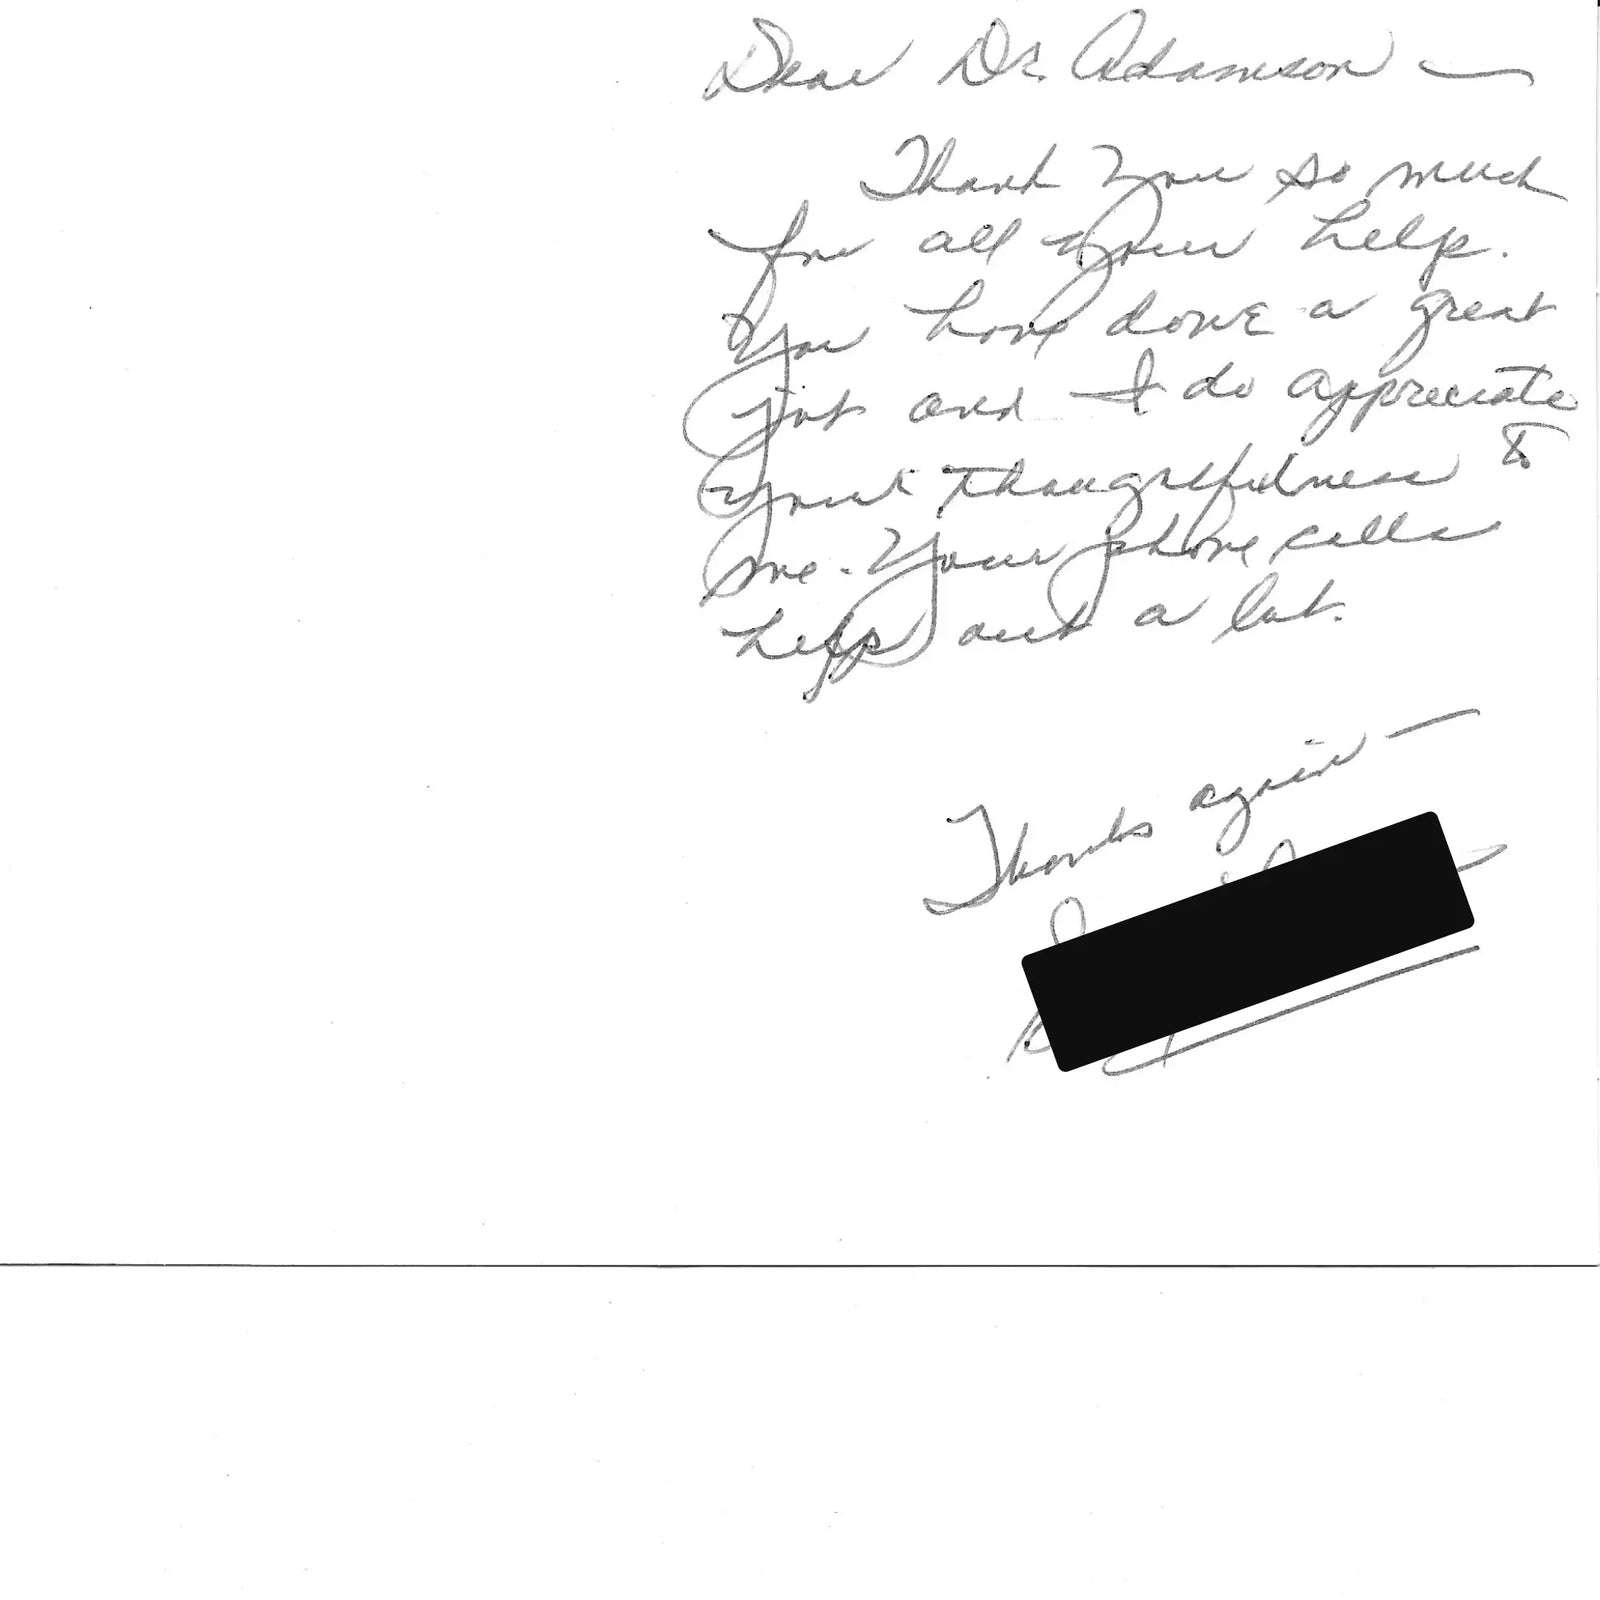 Dear Dr. Adamson —
Thank you so much
for all your help.
You have done a great
job and I do appreciate
your thoughtfulness to
me. Your phone calls
help out a lot.
Thanks again —